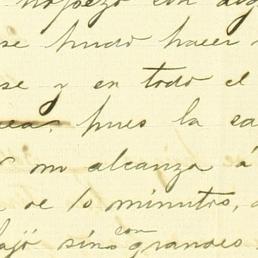 tropezó con alg
se pudo hacer
se y en todo el
pues la ca
no alcanza á
de 10 minutos,
sino con grandes